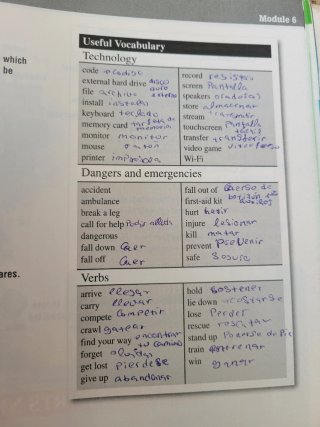 Module 6
which
be
Useful Vocabulary
Technology
code
external hard drive disco duro externo
file archivo
install instalar
keyboard teclado
memory card tarjeta de memoria
monitor monitor
mouse raton
printer impresora
record
screen Pantalla
speakers
store almacenar
stream
touchscreen Pantalla tactil
transfer transferir
video game
Wi-Fi
Dangers and emergencies
accident
ambulance
break a leg
call for help
dangerous
fall down Caer
fall off Caer
fall out of
first-aid kit
hurt herir
injure lesionar
kill matar
prevent Prevenir
safe
Verbs
arrive llegar
carry llevar
compete Competir
crawl gatear
find your way encontrar tu camino
forget olvidar
get lost
give up abandonar
hold
lie down
lose Perder
rescue
stand up
train entrenar
win ganar
ares.